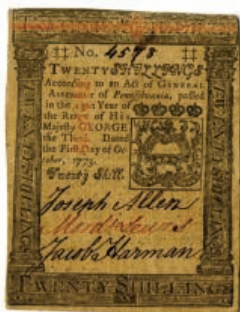 ‡‡ No. 4578 ‡‡
TWENTY SHILLINGS
According to an Act of GENERAL
Assembly of Pennsylvania, passed
in the 13th Year of
the Reign of His
Majesty GEORGE
the Third. Dated
the First Day of Oc-
tober, 1773.
Twenty Shill.
Joseph Allen
Mord Lewis
Jacob Harman
TWENTY SHILLINGS